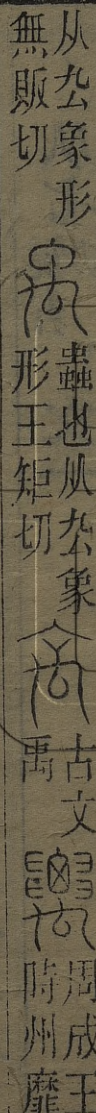 从厹象形
無販切
禹
蟲也从厹象
形王矩切
古文
禹
周成王
時州靡